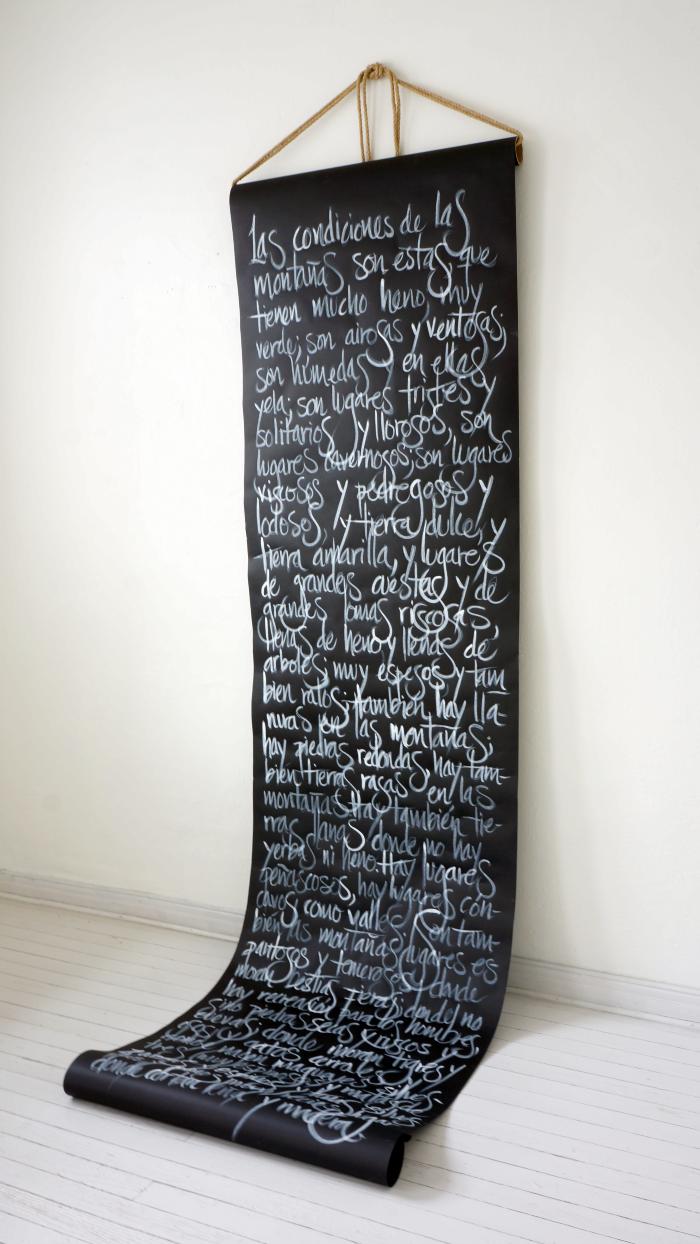 Las condiciones de las
montañas son estas, que
tienen mucho heno muy
verde; son airosas y ventosas;
son húmedas y en ellas
yela; son lugares tristes y
solitarios y llorosos, son
lugares cavernosos; son lugares
riscosos y pedregosos y
lodosos, y tierra dulce, y
tierra amarilla, y lugares
de grandes cuestas y de
grandes lomas riscosas,
llenas de heno y llenas de
arboles; muy espesos y tam
bien ralos; también hay lla-
nuras en las montañas;
hay piedras redondas, hay tam-
bien tierras rasas en las
montañas. Hay también tie-
rras llanas donde no hay
yerbas ni heno. Hay lugares
peñascosos, hay lugares cón-
cavos como valles. Son tam-
bién las montañas lugares es
pantosos y temerosos, donde
moran bestias fieras, donde no
hay recreación para los hombres,
sino piedras secas y riscos y
donde moran tigres y
osos y gatos cerval
y madera